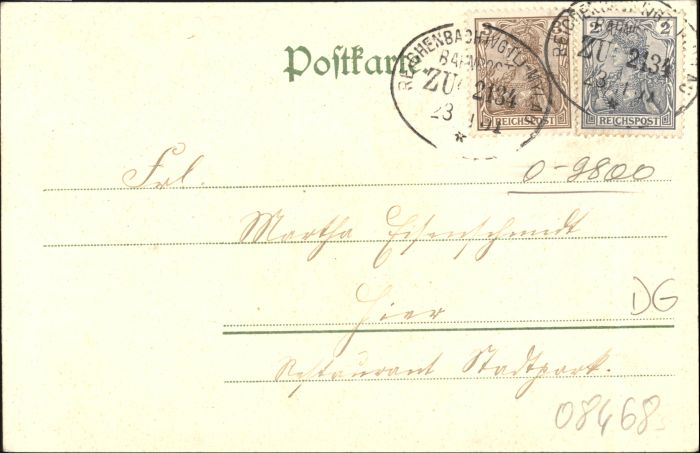 Postkarte
REICHENBACH
BAHNPOST
ZUG 2134
23
REICHSPOST
2
ZUG 2134
23
REICHSPOST
Frl.
0-9800
Martha Eisenschmidt
Hier
DG
Restaurant Stadtpark.
08468